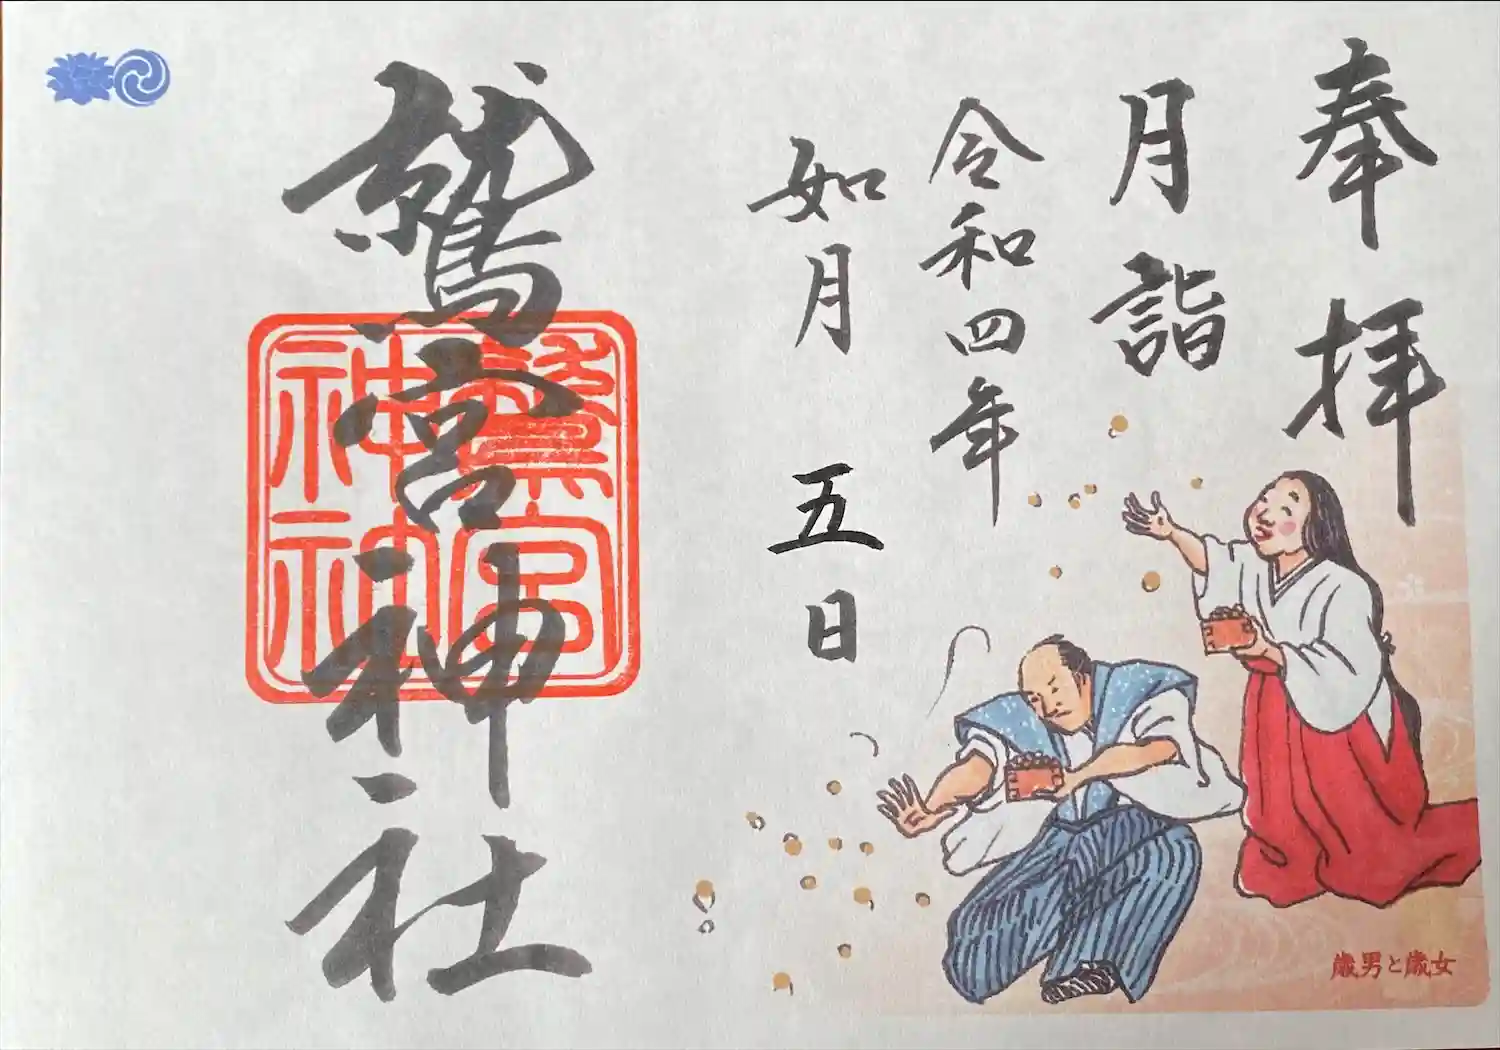 奉拝
月詣
令和四年
如月 五日
鷲宮神社
鷲宮
神社
歳男と歳女